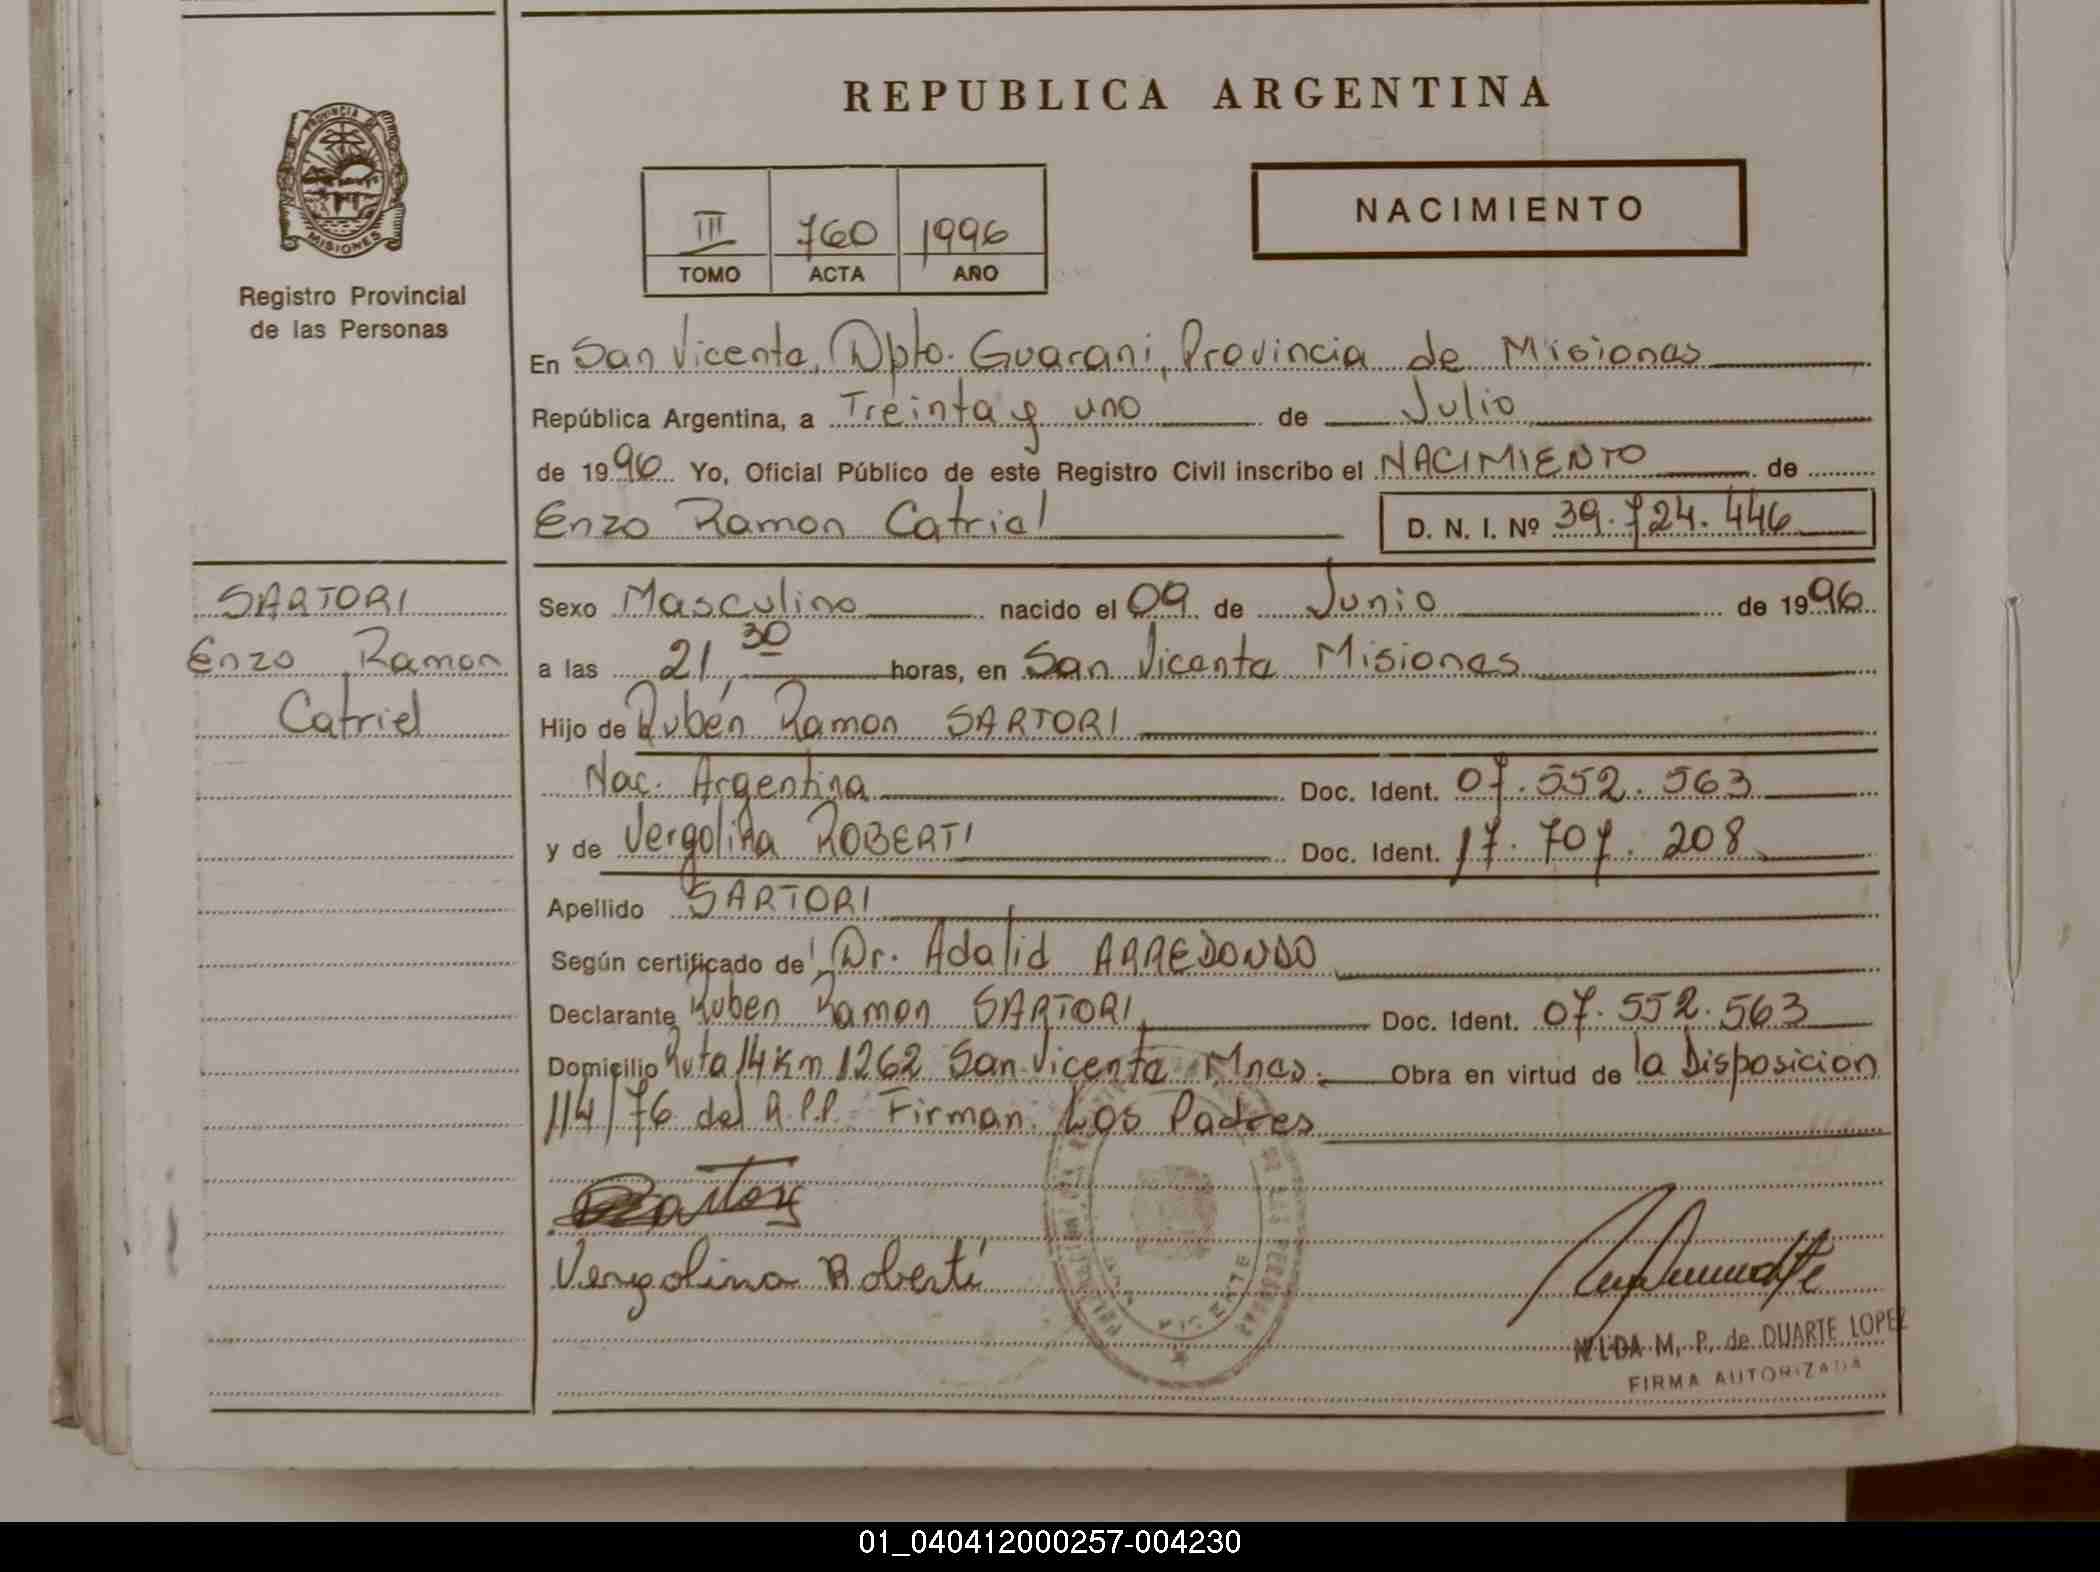 REPUBLICA ARGENTINA
PROVINCIA DE
MISIONES
Registro Provincial
de las Personas
III 760 1996
TOMO ACTA AÑO
NACIMIENTO
En San Vicente, Dpto. Guarani, Provincia de Misiones
República Argentina, a Treinta y uno de Julio
de 1996 Yo, Oficial Público de este Registro Civil inscribo el NACIMIENTO de
Enzo Ramon Catriel D. N. I. Nº 39.724.446
SARTORI
Enzo Ramon
Catriel
Sexo Masculino nacido el 09 de Junio de 1996
a las 21,30 horas, en San Vicente Misiones
Hijo de Rubén Ramon SARTORI
Nac. Argentina Doc. Ident. 07.552.563
y de Vergolina ROBERTI Doc. Ident. 17.707.208
Apellido SARTORI
Según certificado de Dr. Adalid ARREDONDO
Declarante Ruben Ramon SARTORI Doc. Ident. 07.552.563
Domicilio Ruta 14 Km 1262 San Vicente Mnes. Obra en virtud de la Disposicion
114/76 del R.P.P. Firman Los Padres
Vergolina Roberti
VICENTE
NILDA M. P. de DUARTE LOPEZ
FIRMA AUTORIZADA
01_040412000257-004230